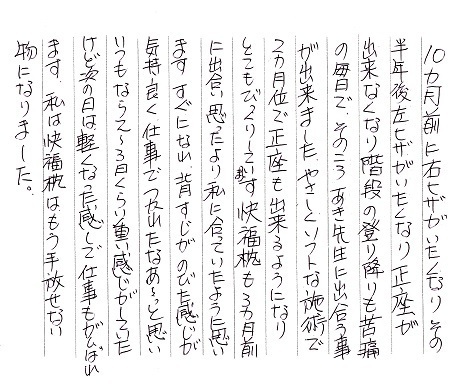 10カ月前に右ヒザがいたくなりその
半年後左ヒザがいたくなり正座が
出来なくなり階段の登り降りも苦痛
の毎日で、そのころあき先生に出合う事
が出来ました、やさしくソフトな施術で
2カ月位で正座も出来るようになり
とてもびっくりしています快福枕も3カ月前
に出合い思ったより私に合っていたように思い
ます すぐになれ、背すじがのびた感じが
気持良く仕事でつかれたなあ〜っと思い
いつもなら2〜3日くらい重い感じがしていた
けど次の日は軽くなった感じで仕事もがんばれ
ます、私は快福枕はもう手放せない
物になりました。